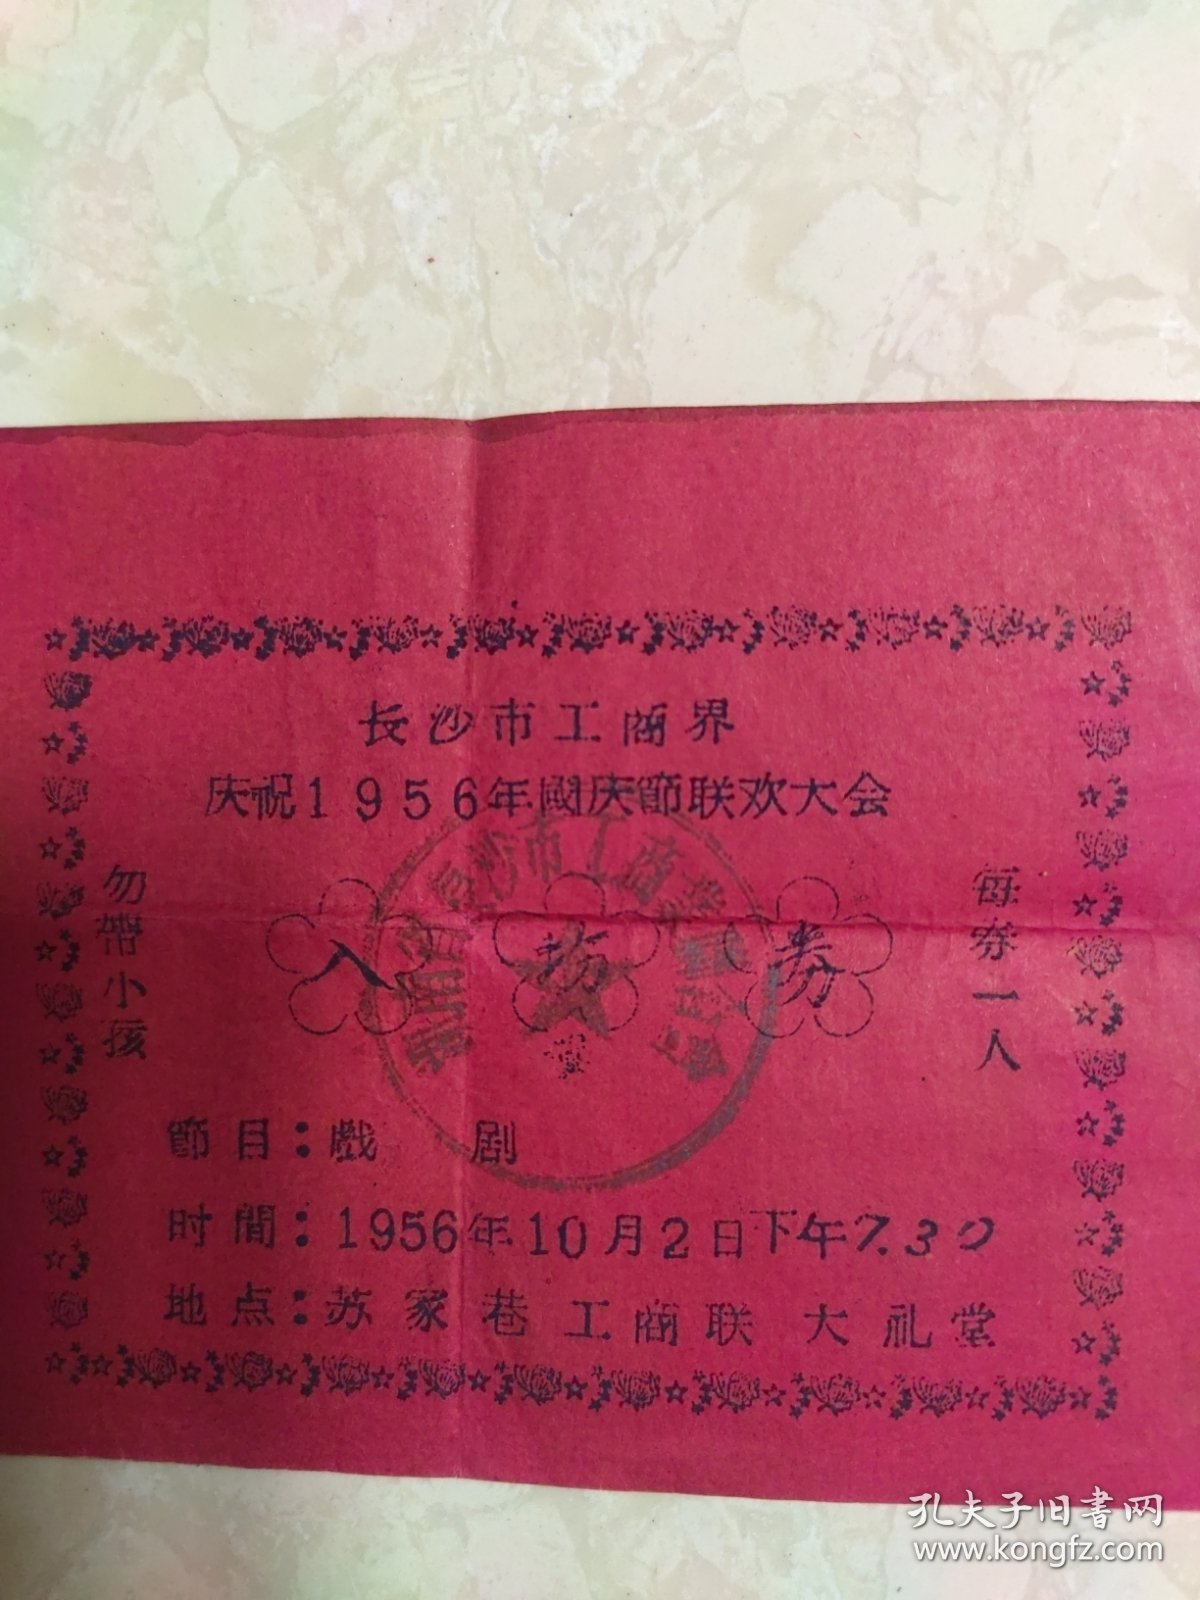 长沙市工商界
庆祝1956年國庆節联欢大会
勿带小孩
入场券
每券一人
節目:戲 剧
时間:1956年10月2日下午7.30
地点:苏家巷工商联大礼堂
孔夫子旧书网
www.kongfz.com